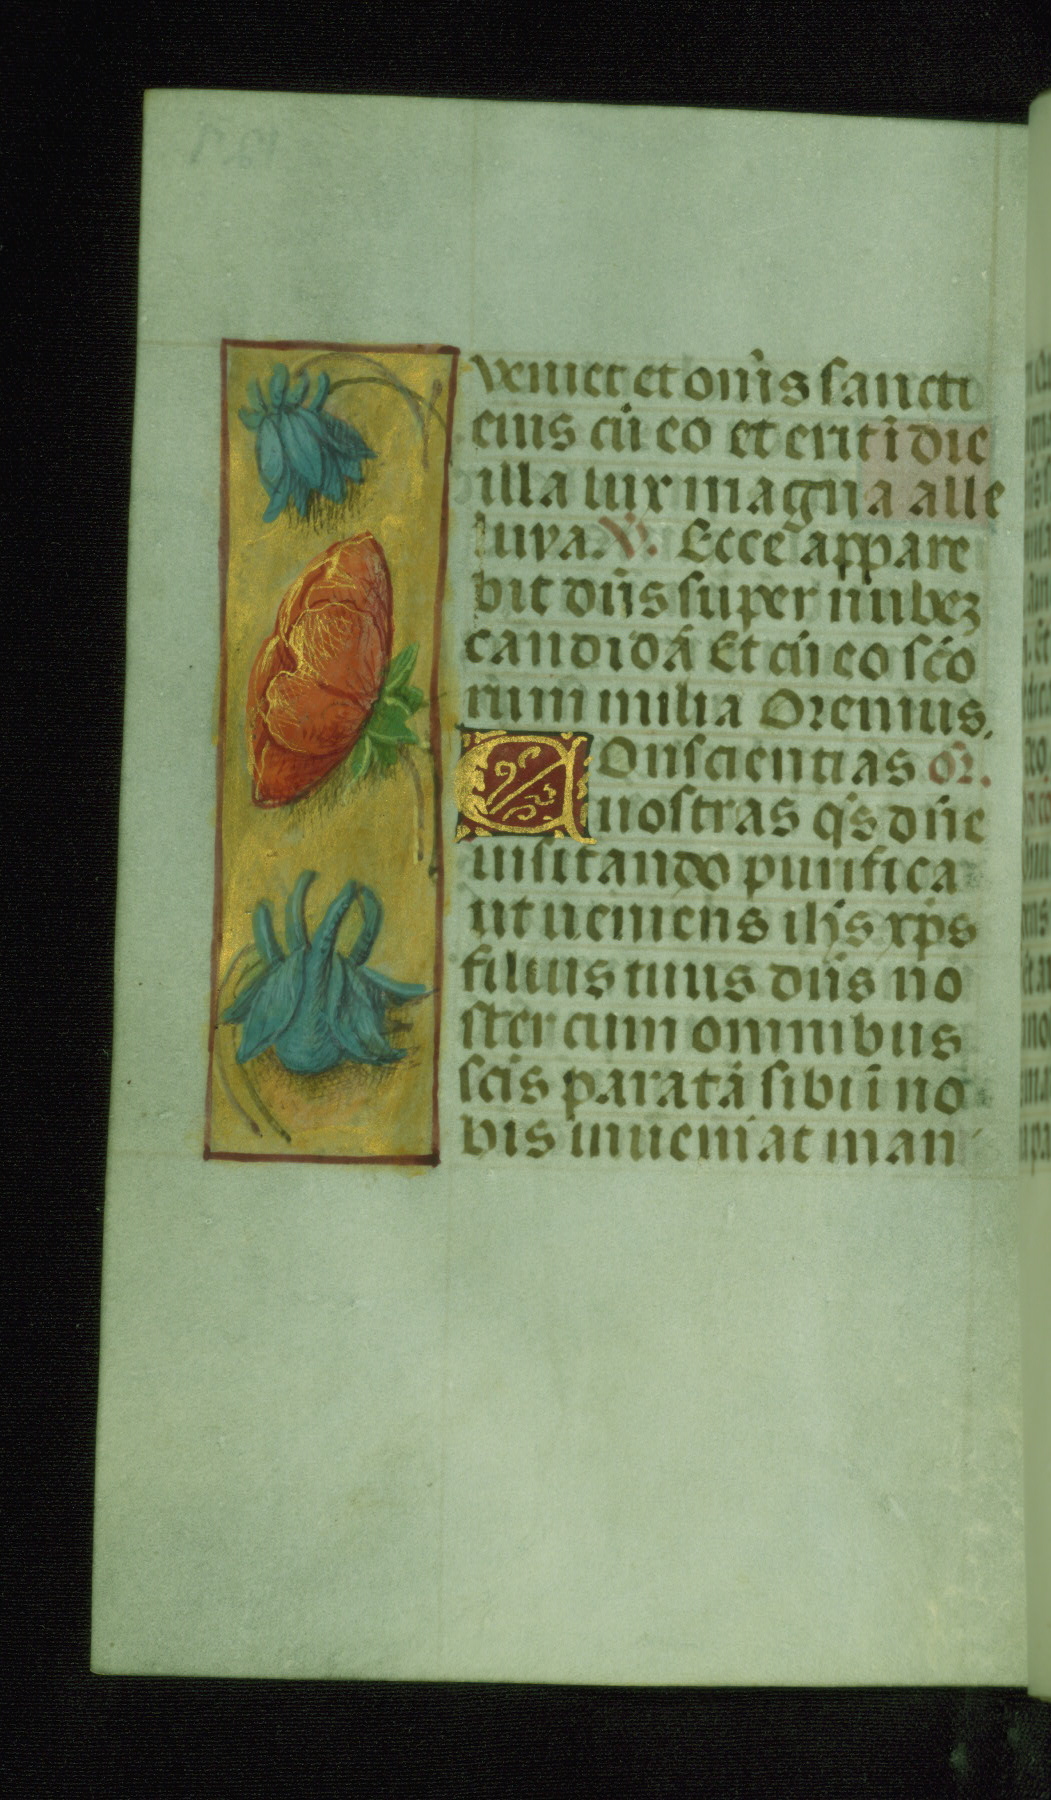 veniet et om̄s sancti
eius cū eo et erit ī die
illa lux magna alle
luya. V̄. Ecce appare
bit dn̄s super nubez
candidā Et cū eo sc̄o
rum milia Oremus.
Conscientias or̄.
nostras q̄s dn̄e
uisitando purifica
ut ueniens ih̄s xp̄s
filius tuus dn̄s no
ster cum omnibus
sc̄is paratā sibi ī no
bis inueniat man